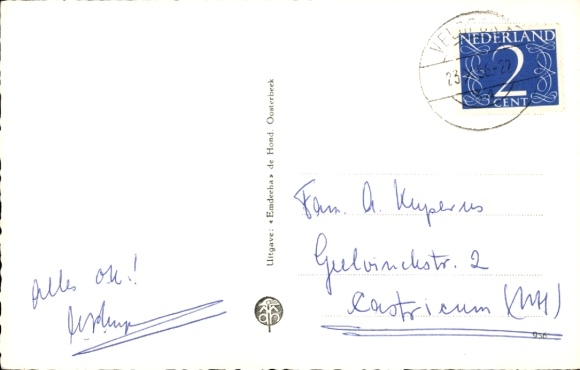 NEDERLAND
2
CENT
Uitgave: «Emdeeha» de Hond. Oosterbeek
Fam. A. Kuperus
Geelvinckstr. 2
Castricum (NH)
Alles ok!